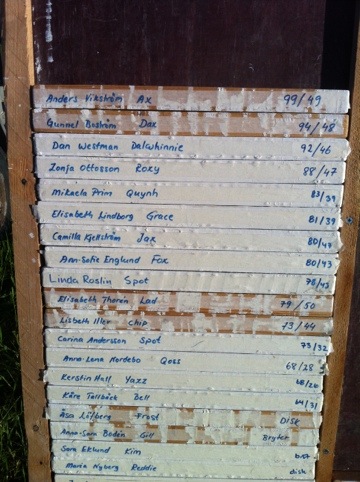 Anders Vikström Ax 99/49
Gunnel Boström Dax 94/48
Dan Westman Dalwhinnie 92/46
Zonja Ottosson Roxy 88/47
Mikaela Prim Quynh 83/39
Elisabeth Lindborg Grace 81/39
Camilla Kjellström Jax 80/47
Ann-Sofie Englund Fox 80/43
Linda Roslin Spot 78/43
Elisabeth Thorén Lad 79/50
Lisbeth Iller Chip 73/44
Carina Andersson Spot 73/32
Anna-Lena Nordebo Qoss 68/28
Kerstin Hall Yaxz
Kåre Tallbäck Bell 64/31
Åsa Löfberg Frost Disk
Anna-Sara Bodén Gill Bryter
Sara Eklund Kim
Maria Nyberg Reddie disk